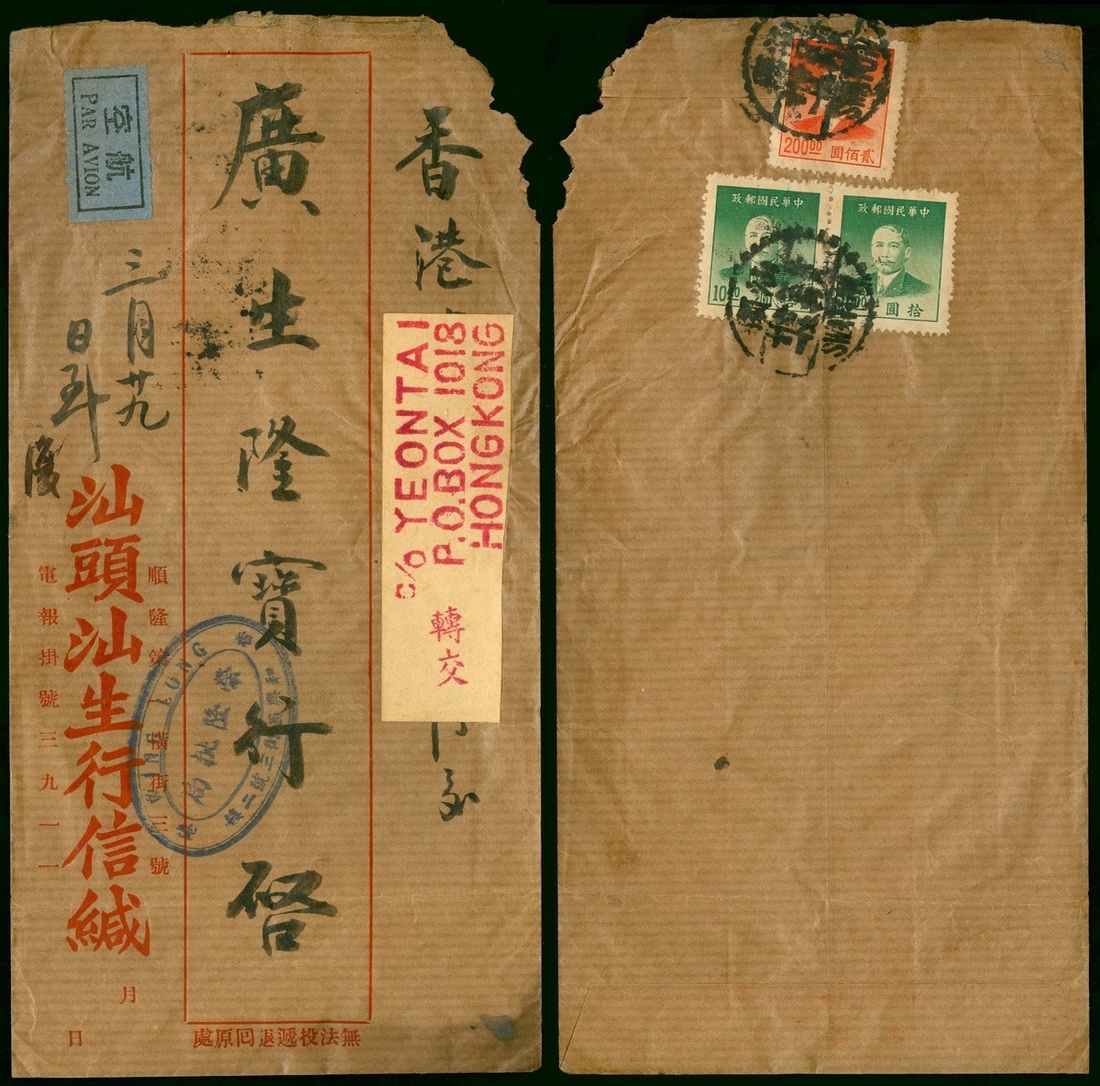 香港
c/o YEONTAI
P.O.BOX 1018
HONGKONG
轉交
廣生隆寶行啓
航空
PAR AVION
三月廿九
日
順隆第一橫街三號
汕頭汕生行信緘
電報掛號三九一一
月
日
無法投遞退囘原處
WING LUNG
榮隆批局
200.00
貳佰圓
中華民國郵政
10.00
中華民國郵政
拾圓